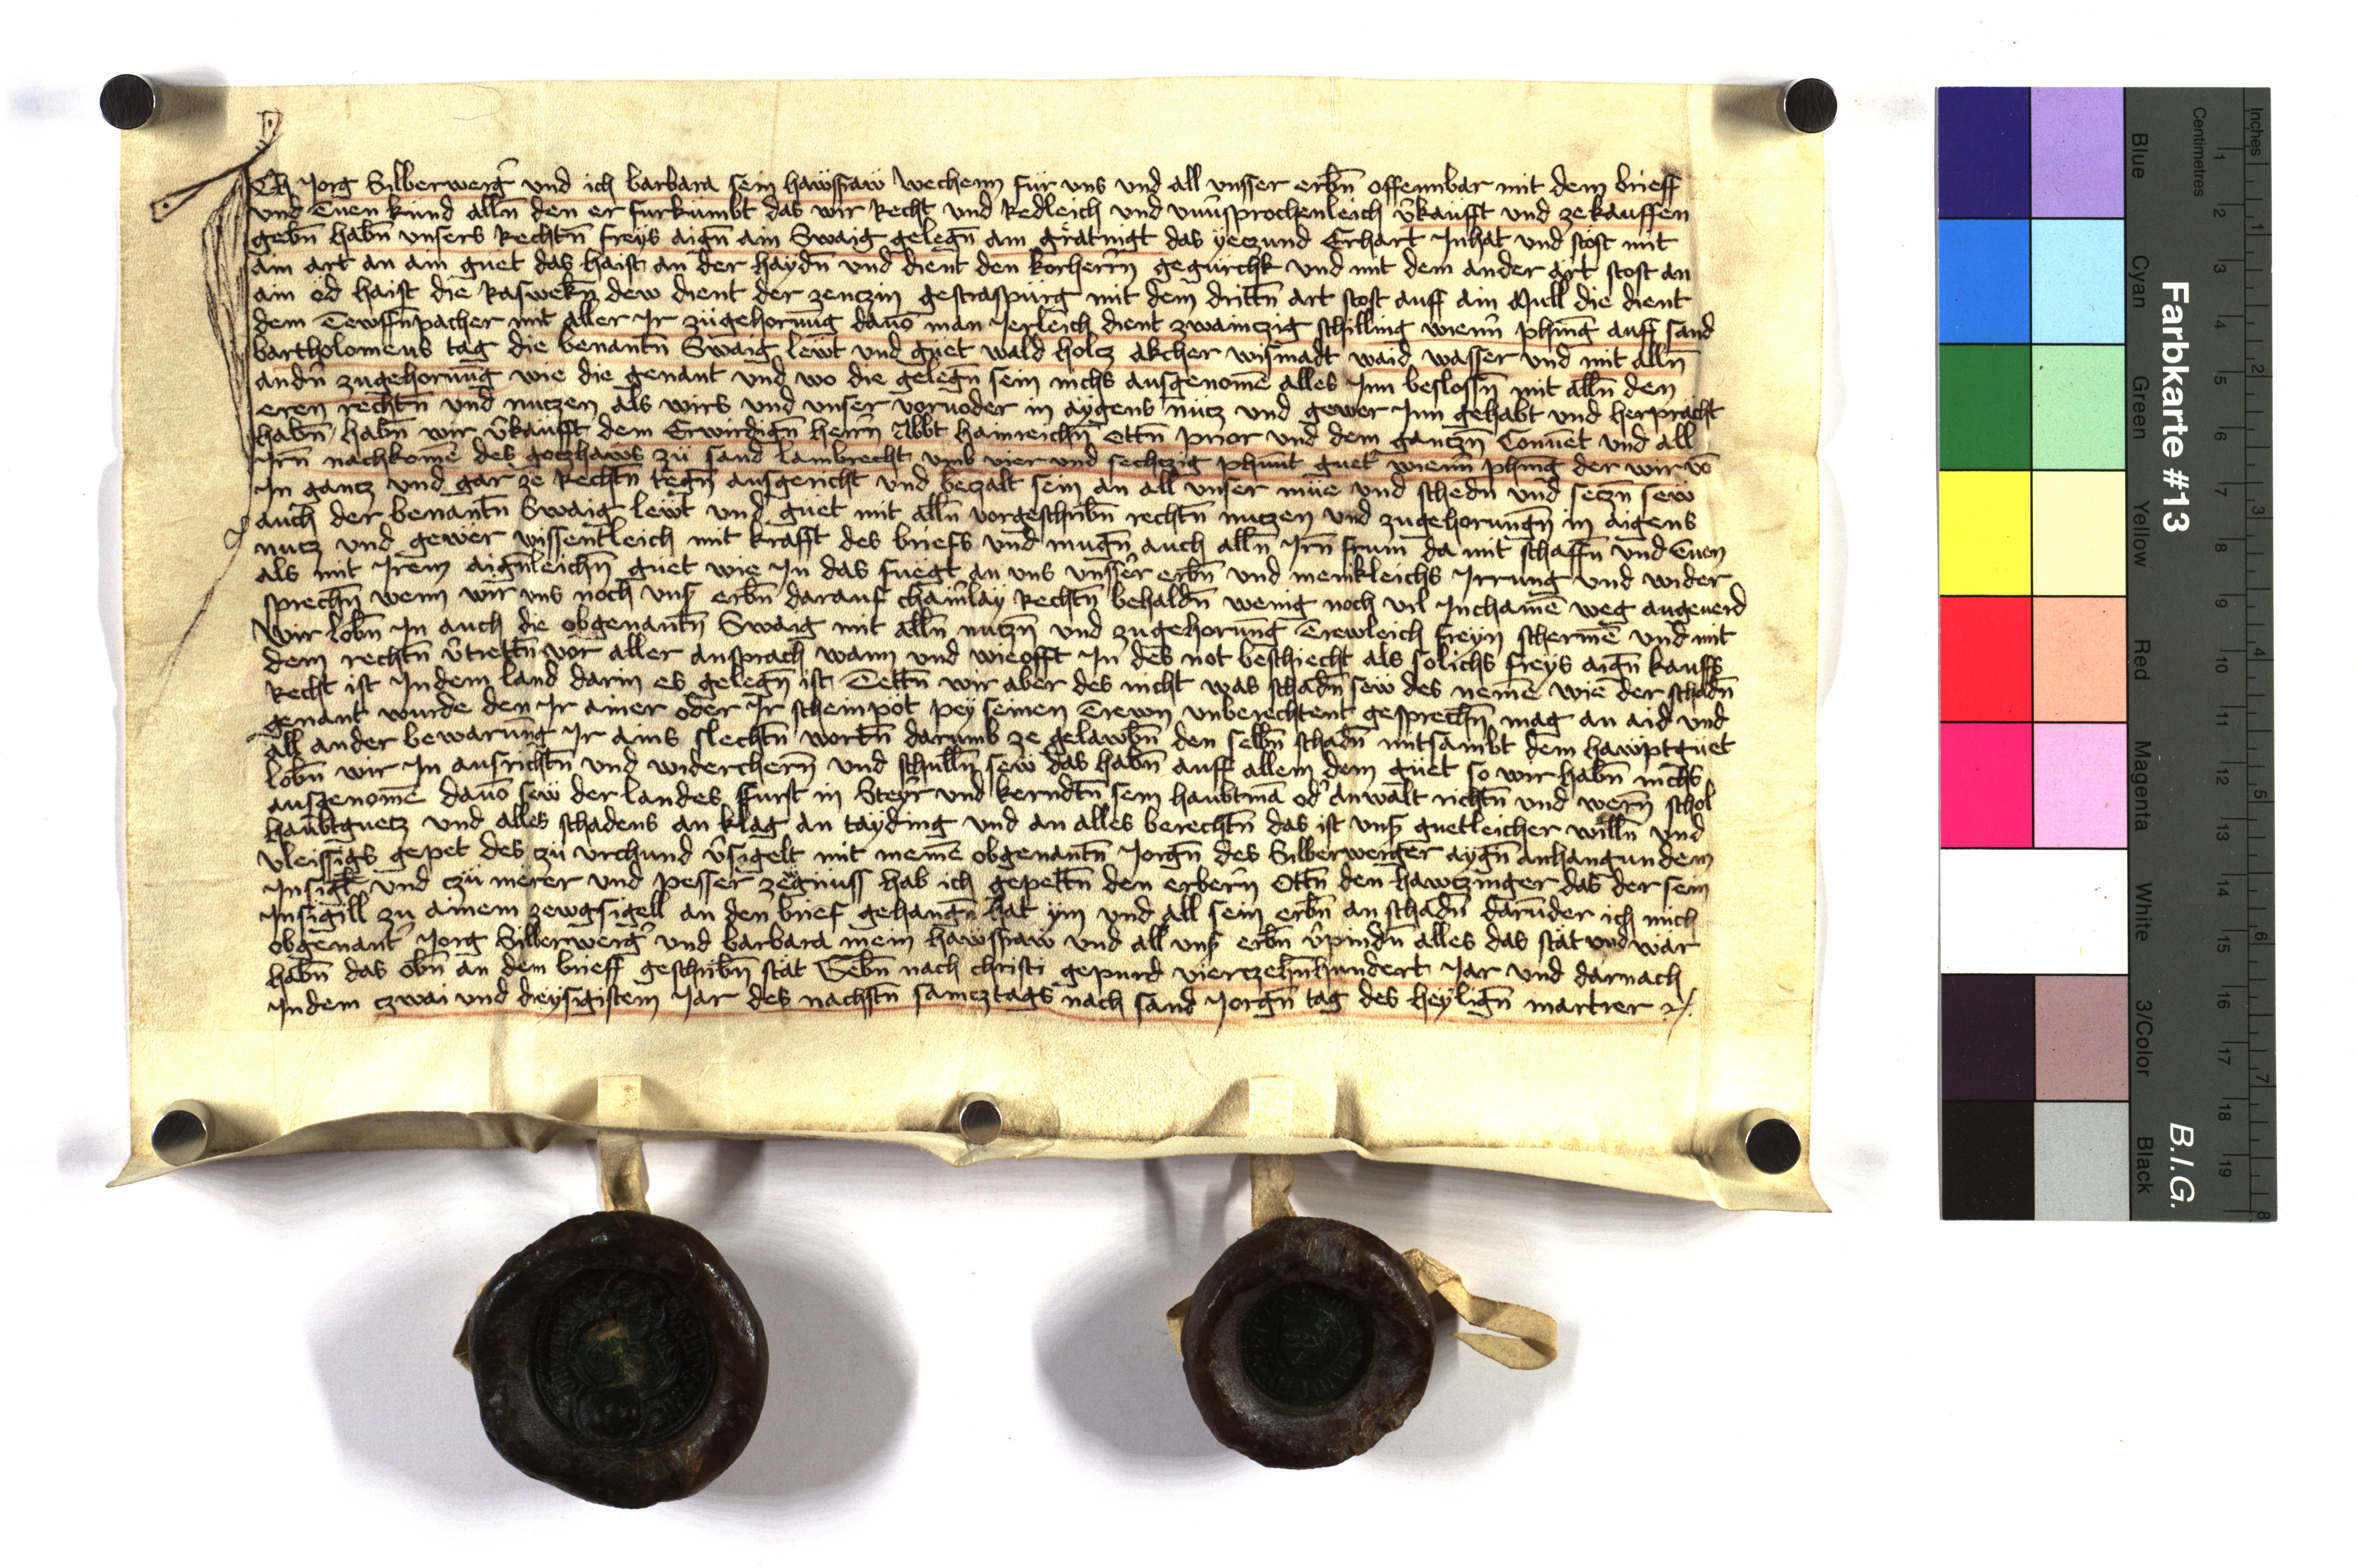 Ich Jorg Silberwerg̕ und ich barbara sein hawsfraw wechenn für vns und all vnsser erbn̄ offennbar mit dem brieff
vnd Tuen kund alln̄ den er furkumbt das wir Recht und Redleich und vnu̕sprochenleich v̕kaufft und ze kauffen
gebn̄ habn̄ vnsers Rechtn̄ freys aign̄ ain Swaig gelegn̄ am grätnigt das yeczund Erhart Inhat und stöst mit
aim art an am guet das haist an der haydn̄ und dient den korherrn̄ gegurchk und mit dem ander art stost an
ain ed haist die Raswekn̄ dew dient der zenczin gestraspurg mit dem drittn̄ art stost auff ain Mull die dient
dem Tewffn̄pacher mit aller Ir zugehorun̄g dauō man Jerleich dient zwainczig schilling wienn̄ phinḡ auff sand
bartholomeus tag die benantn̄ Swaig lewt und guet wald holcz akcher wismadt waid wasser und mit alln̄
andn̄ zugehorun̄g wie die genant und wo die gelegn̄ sein nichs ausgenomē alles Inn beslossn̄ mit alln̄ den
eren rechtn̄ und nuczen als wirs und vnser voruoder in aygens nucz und gewer Inn gehabt und herpracht
habn̄ habn̄ wir v̕kaufft dem Erwirdign̄ herrn̄ Abbt hainreichn̄ Ottn̄ prior und dem ganczn̄ Conuēt und all
Irn̄ nachkomē des goczhaws zu sand lambrecht vmb vier und sechczig phunt guet̕ wienn̄ phinḡ der wir vō
In gancz und gar ze Rechtn̄ tegn̄ ausgericht und beczalt sein an all vnser mue und schedn̄ und seczn̄ sew
auch der benantn̄ Swaig lewt und guet mit alln̄ vorgeschribn̄ rechtn̄ nuczen und zugehorungn̄ in aigens
nucz und gewer wissentleich mit krafft des briefs und mugn̄ auch alln̄ Irn̄ frum da mit schaffn̄ und Tuen
als mit Irem aign̄leichn̄ guet wie In das fuegt an vns vnsser erbn̄ und menkleichs Irrung und wider
sprechn̄ wenn wir vns noch vns̕ erbn̄ darauf chain̄lay Rechtn̄ behaldn̄ wenig noch vil Inchainē weg angeuerd
Wir lobn̄ In auch die obgenantn̄ Swaig mit alln̄ nuczn̄ und zugehorun̄g Trewleich freyn schermē und mit
dem rechtn̄ v̕trettn̄ vor aller ansprach wann und wieofft In des not beschiecht als solichs freys aign̄ kauffs
Recht ist Indem land darin es gelegn̄ ist Tettn̄ wir aber des nicht was schadn̄ sew des nemē wie der schadn̄
genant wurde den Ir ainer oder Ir scheinpot pey seinen Trewn vnberechtent gesprechn̄ mag an aid und
all ander bewarung Ir ains slechtn̄ wortn̄ darumb ze gelawbn̄ den selbn̄ schadn̄ mitsambt dem hawptguet
lobn̄ wir In ausrichtn̄ und widerchern̄ und schulln̄ sew das habn̄ auff allem dem guet so wir habn̄ nichs
ausgenomē dauō sew der landes furst in Steyr und kerndtn̄ sein haubtmā od̕ anwalt richtn̄ und wern̄ schol
haubtguetz und alles schadens an klag an tayding und an alles berechtn̄ das ist vns̕ guetleicher willn̄ und
vleissigs gepet des zu vrchund v̕sigelt mit meinē obgenantn̄ Jorgn̄ des Silberwerger aygn̄ anhangundem
Insigl̄ und czu merer und pesser zegnuss hab ich gepettn̄ den erbern̄ Ottn̄ den hawczinger das der sein
Insigill zu ainem zewgsigell an den brief gehangn̄ hat ym und all sein erbn̄ an schadn̄ darunder ich mich
obgenant̕ Jorg Silberwerg̕ und barbara mein hawsfraw und all vns̕ erbn̄ v̕pindn̄ alles das stät und war
habn̄ das obn̄ an dem brieff geschribn̄ stät Gebn̄ nach christi gepurd vierczehn̄hundert Jar und darnach
Indem czwai und dreysigistem Jar des nachstn̄ samcztags nach sand Jorgn̄ tag des heylign̄ martrer
Farbkarte #13
B.I.G.
Inches
Centimetres
1 2 3 4 5 6 7 8
1 2 3 4 5 6 7 8 9 10 11 12 13 14 15 16 17 18 19
Blue Cyan Green Yellow Red Magenta White 3/Color Black